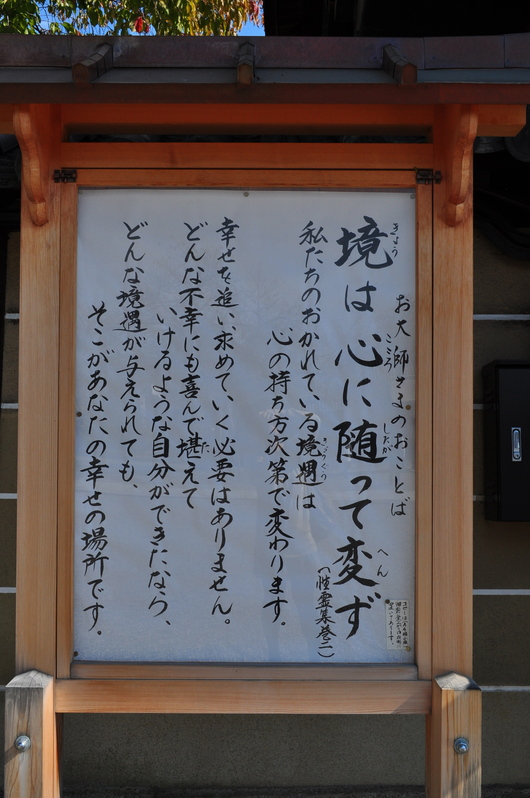 お大師さまのおことば
境は心に随って変ず
(性霊集巻二)
私たちのおかれている境遇は
心の持ち方次第で変わります。
幸せを追い求めていく必要はありません。
どんな不幸にも喜んで堪えて
いけるような自分ができたなら、
どんな境遇が与えられても、
そこがあなたの幸せの場所です。